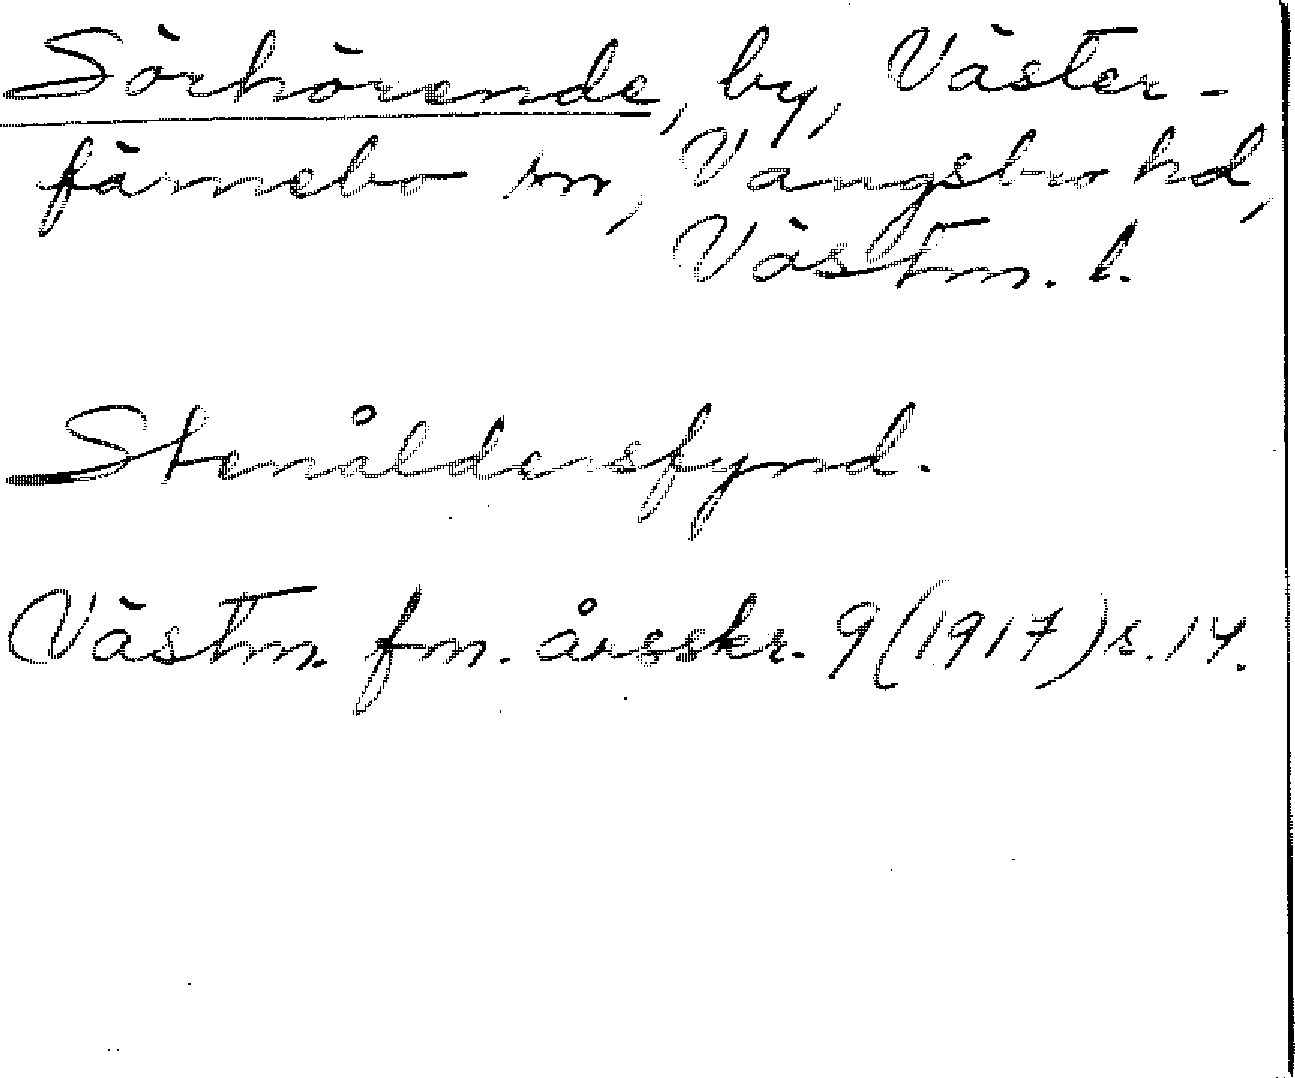 Sörhörende, by, Väster-
färnebo sn, Vangsbro hd,
Västm. l.
Stenåldersfynd.
Västm. fm. årsskr. 9 (1917) s. 14.